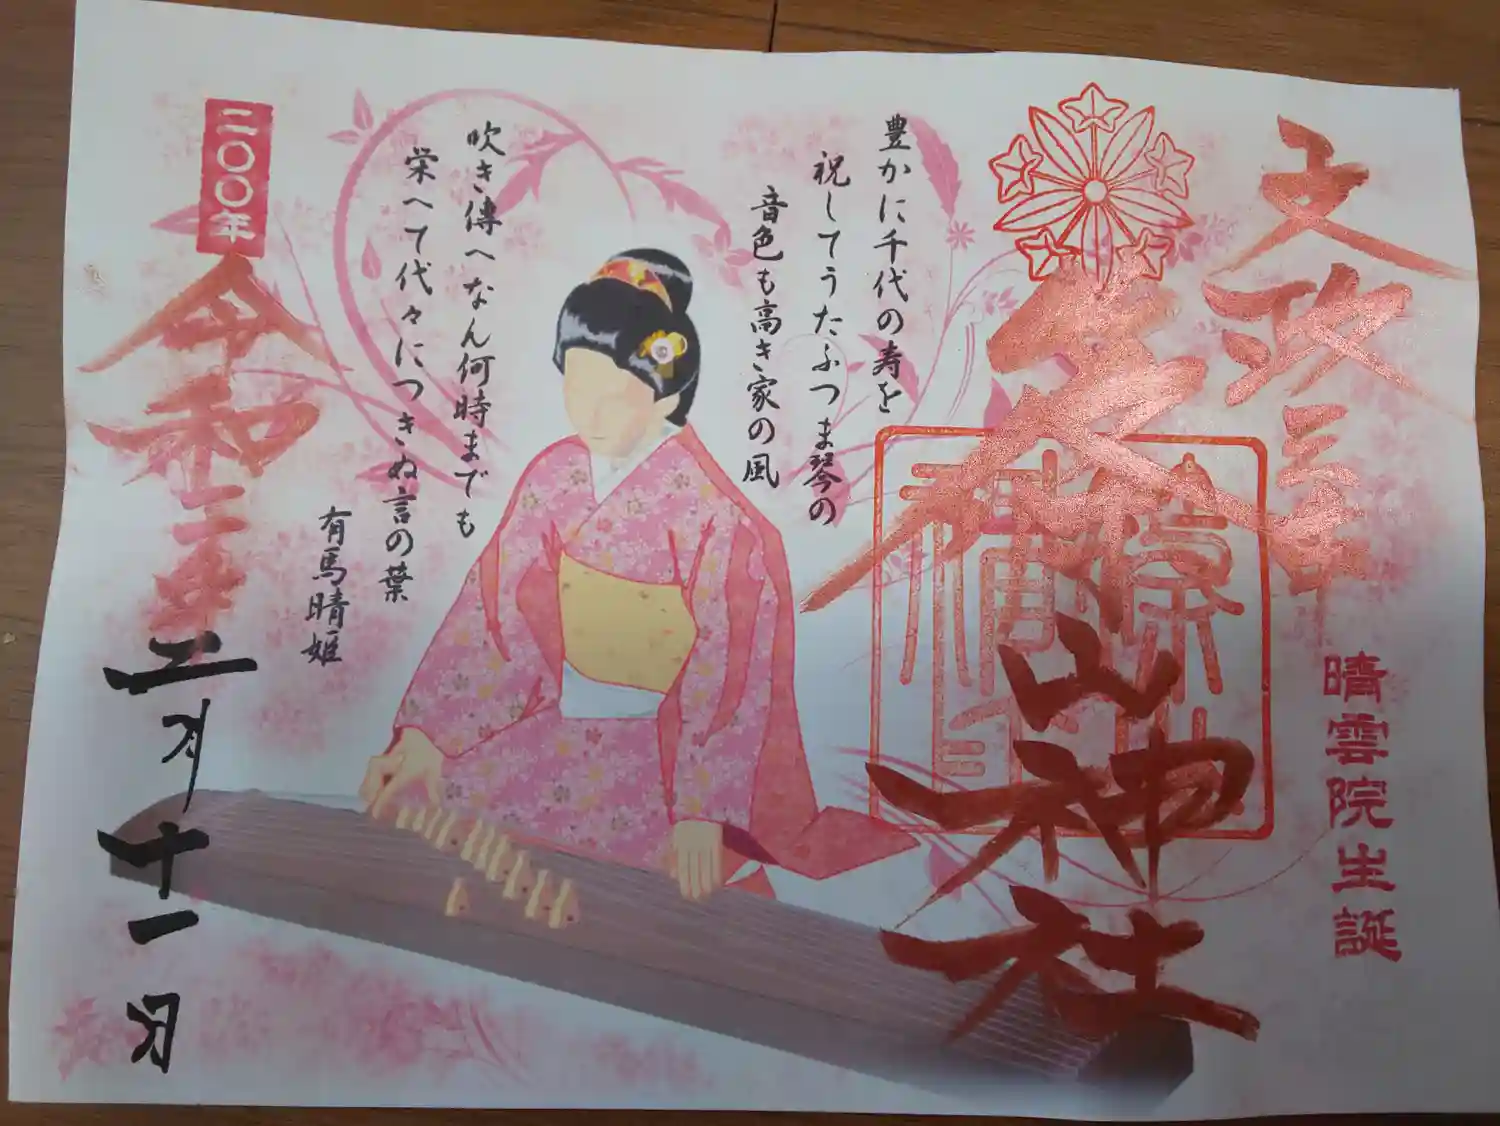 文政三年
晴雲院生誕
篠山神社
豊かに千代の寿を
祝してうたふつま琴の
音色も高き家の風
吹き傳へなん何時までも
栄へて代々につきぬ言の葉
有馬晴姫
二〇〇年
令和二年
二月十一日